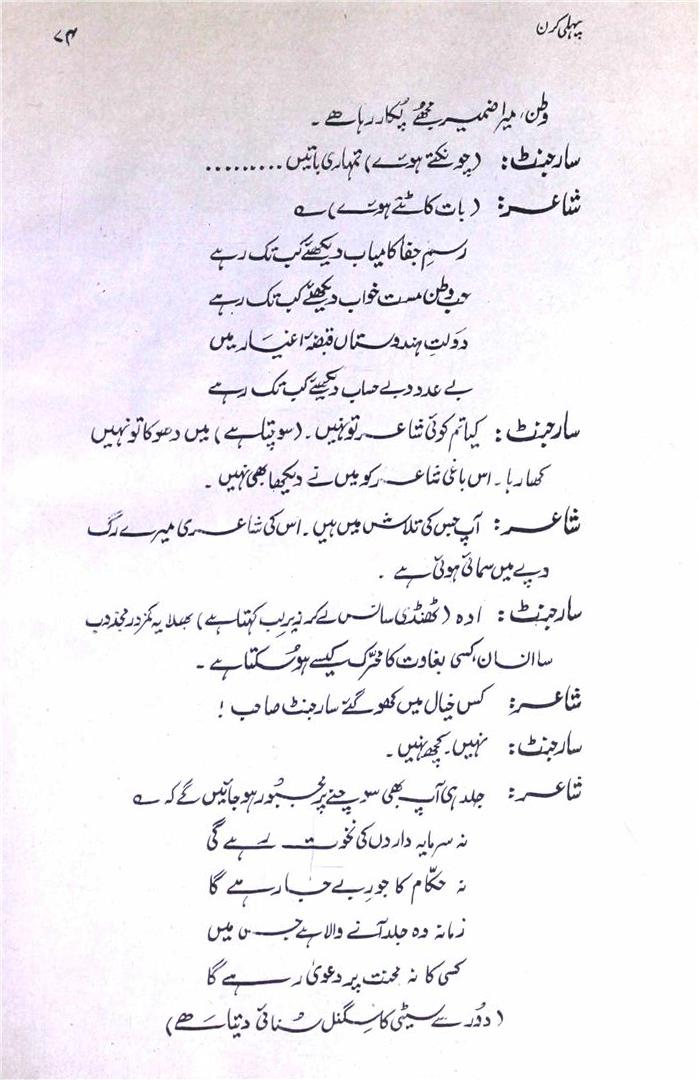 پہلی کرن
۷۴
وطن، میرا ضمیر مجھے پکار رہا ہے ۔
سارجنٹ: (چونکتے ہوئے) تمہاری باتیں .........
شاعر: (بات کاٹتے ہوئے) ؎
رسمِ جفا کامیاب دیکھئے کب تک رہے
حب وطن مست خواب دیکھئے کب تک رہے
دولتِ ہندوستاں قبضۂ اغیار میں
بے عدد و بے حساب دیکھئے کب تک رہے
سارجنٹ: کیا تم کوئی شاعر تو نہیں ۔ (سوچتا ہے) میں دھوکا تو نہیں
کھا رہا ۔ اس باغی شاعر کو میں نے دیکھا بھی نہیں ۔
شاعر: آپ جس کی تلاش میں ہیں ۔ اس کی شاعری میرے رگ
و پے میں سمائی ہوئی ہے ۔
سارجنٹ: اوہ (ٹھنڈی سانس لے کر زیرِ لب کہتا ہے) بھلا یہ کمزور مجذوب
سا انسان کسی بغاوت کا محرّک کیسے ہو سکتا ہے ۔
شاعر: کس خیال میں کھو گئے سارجنٹ صاحب !
سارجنٹ: نہیں ۔ کچھ نہیں ۔
شاعر: جلد ہی آپ بھی سوچنے پر مجبور ہو جائیں گے کہ ؎
نہ سرمایہ داروں کی نخوت رہے گی
نہ حکّام کا جورِ بے جا رہے گا
زمانہ وہ جلد آنے والا ہے جس میں
کسی کا نہ محنت پر دعویٰ رہے گا
(دُور سے سیٹی کا سگنل سنائی دیتا ہے)